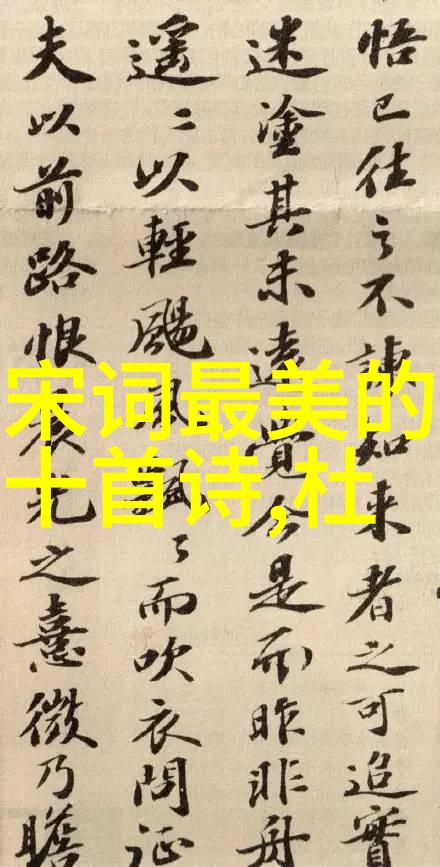 悟已往之不諫知来者之可追實
迷塗其未遠覺今是而昨非舟
遥々以輕颺風飄々而吹衣問征
夫以前路恨晨光之熹微乃瞻
宋词最美的
十首诗,杜